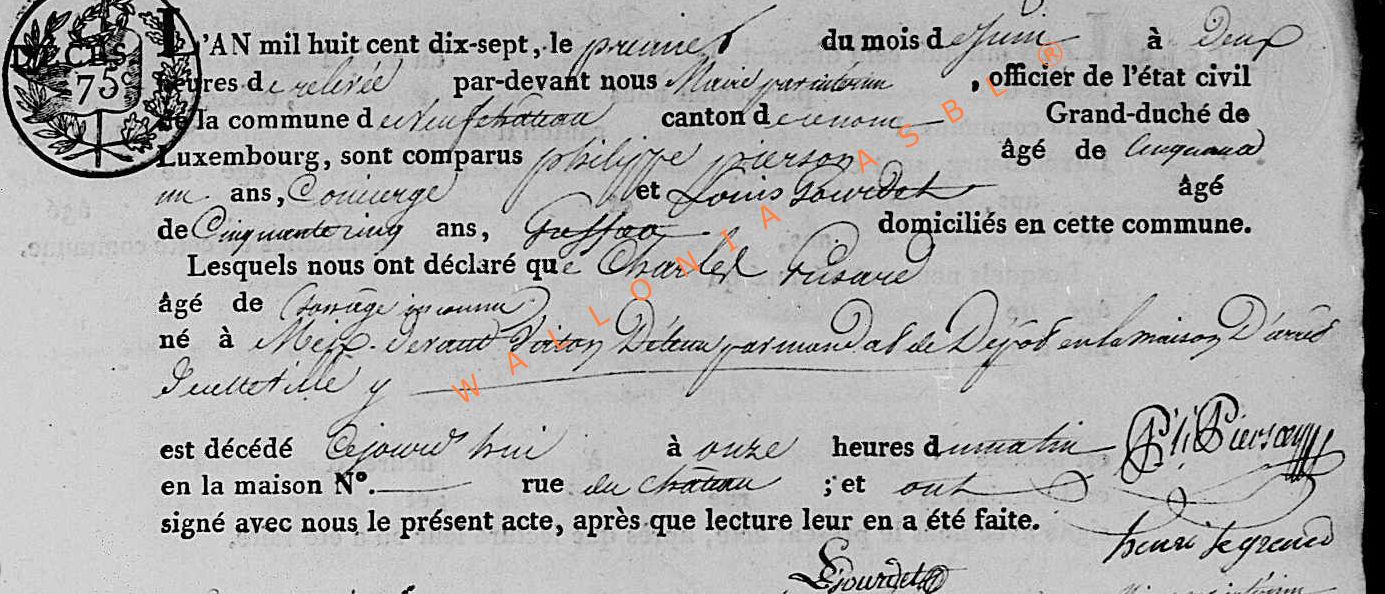 L'AN mil huit cent dix-sept, le premier du mois de Juin à Deux
DÉCÈS.
75c
heures de relevée par-devant nous Maire par interim, officier de l'état civil
de la commune de Neufchateau canton de ce nom Grand-duché de
Luxembourg, sont comparus philippe pierson âgé de Cinquante
un ans, Concierge et Louis Gourdet âgé
de Cinquante cinq ans, domiciliés en cette commune.
Lesquels nous ont déclaré que Charles
âgé de inconnu
né à Meix-devant Virton Détenu par mandat de Dépôt en la maison D'arrêt
De cette ville y
est décédé Cejourd'hui à onze heures du matin
en la maison N°. rue du château ; et ont
signé avec nous le présent acte, après que lecture leur en a été faite.
Ph Pierson
henri legrand
Lgourdet
WALLONIA ASBL ®